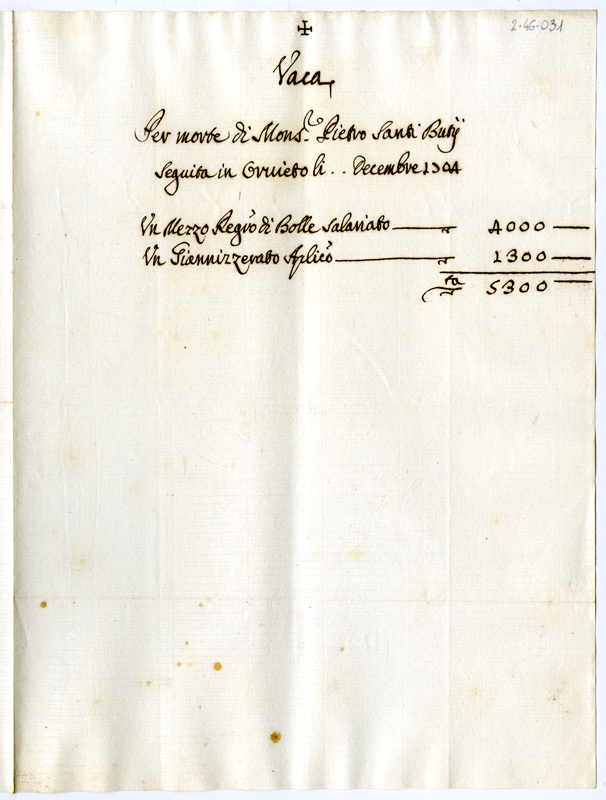 2.46.031
✠
Vaca,
Per morte di Mons.r Pietro Santi Butij
seguita in Orvieto li .. Decembre 1304
Un Mezzo Regro di Bolle Salariato — 4000 —
Un Giannizzerato Aplico — 1300 —
ra 5300 —